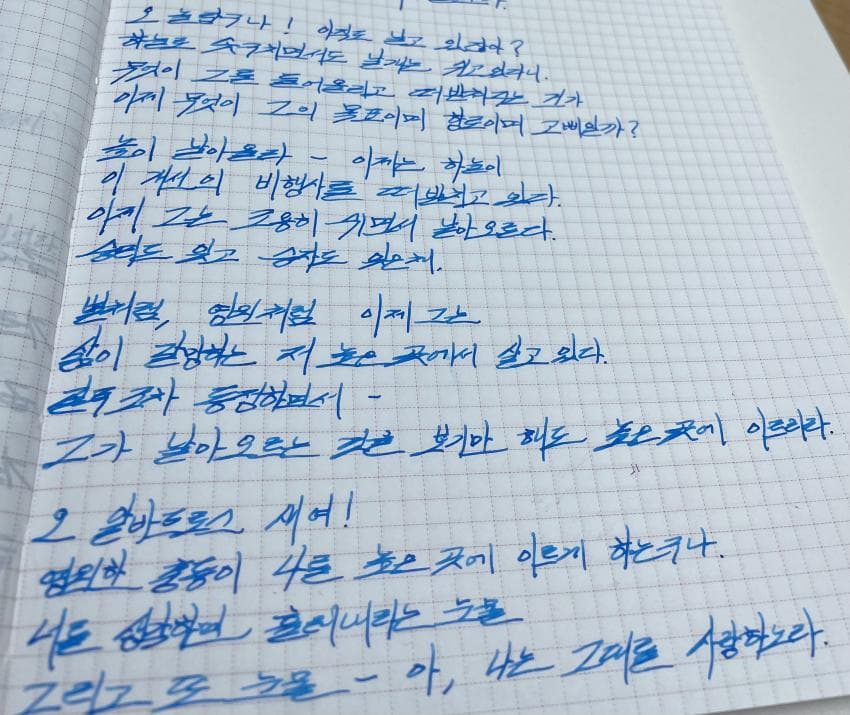 오 놀랍구나! 아직도 날고 있잖아?
하늘로 솟구치면서도 날개는 쉬고 있다니.
무엇이 그를 들어올리고 떠받쳐주는 걸까
이제 무엇이 그의 목표이며 항로이며 고삐일까?
높이 날아올라 - 이제는 하늘이
이 개선의 비행사를 떠받치고 있다.
이제 그는 조용히 쉬면서 날아오르다.
승리도 잊고 승자도 잊은채.
별처럼, 영원처럼 이제 그는
삶이 갈망하는 저 높은 곳에서 살고 있다.
질투조차 동정하면서 -
그가 날아오르는 것을 보기만 해도 높은 곳에 이르리라.
오 알바트로스 새여!
영원한 충동이 나를 높은 곳에 이르게 하는구나.
너를 생각하며 흘러내리는 눈물
그리고 또 눈물 - 아, 나는 그대를 사랑하노라.